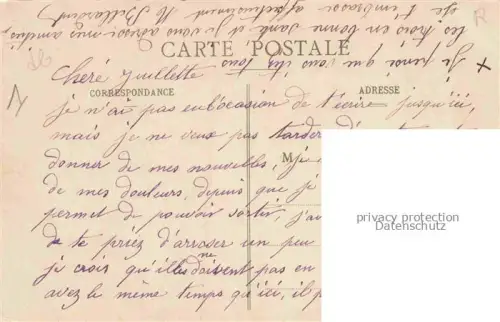 je pense que vous êtes tous
les trois en bonne santé et je vous adresse mes amitiés
je t'embrasse affectueusement M
CARTE POSTALE
Cheré Juillette
CORRESPONDANCE
ADRESSE
je n'ai pas eu l'ocasion de t'ecrire jusqu'ici,
mais je ne veux pas tarder
donner de mes nouvelles, je
M
de mes douleurs, depuis que je
permet de pouvoir sortir, j'av
de te priez d'arroser un peu
je crois qu'illes ne doivent pas en
avez le même temps qu'ici, il p
privacy protection
Datenschutz